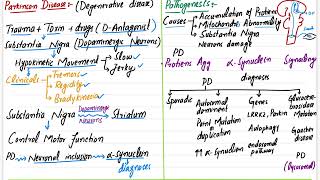 Parkinson Disease: (Degenerative diseas)
Trauma + Toxin + drugs (D-Antagonist)
Substantia Nigra (Dopaminergic Neurons)
Hypokinetic Movement → Slow
Jerky
Clinical → Tremors
→ Regidity
→ Bradykinesia
Substantia Nigra Dopaminergic Neurons → Striatum
Control Motor Function
PD → Neuronal inclusion → α-Synuclein
diagnoses
Pathogenesis:-
Causes → Accumulation of Protein
→ Mitochondria Abnormality
→ Substantia Nigra
Neurons damage
PD
Proteins Agg α-Synuclein Signaling
diagnosis
PD
Sporadic
Autosomal dominant
Point Mutation
duplication
↑↑ α-Synuclein
Genes
LRRK2, Parkin
Autophagy
endosomal pathway
Glucocerebrosidase
Mutation
Gaucher disease
PD
(Lysosomal)